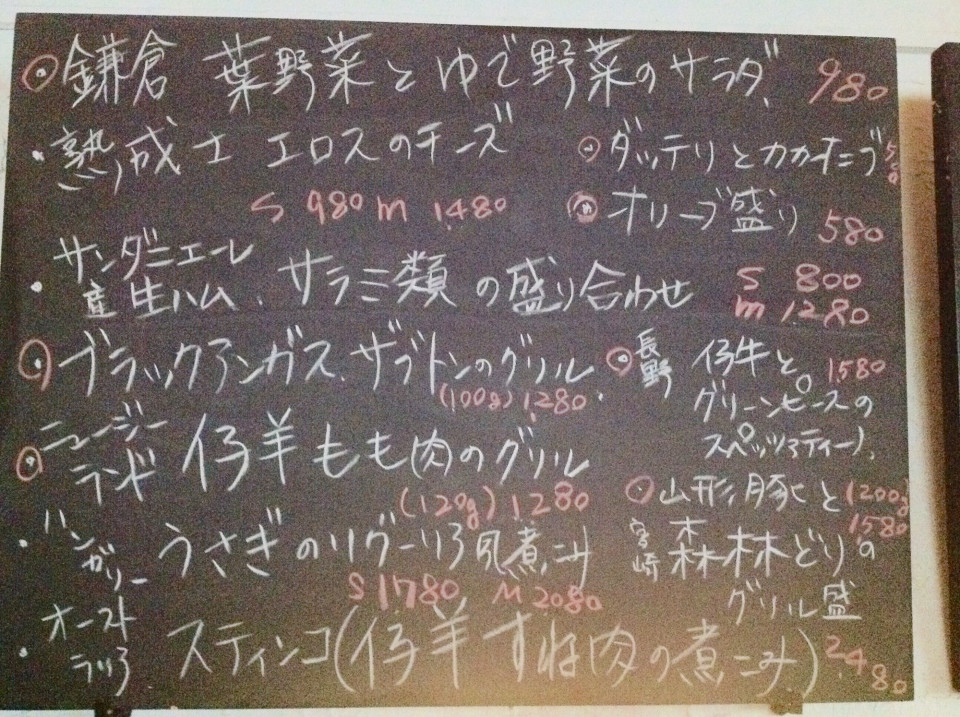 鎌倉 葉野菜とゆで野菜のサラダ 980
・熟成士 エロスのチーズ
S 980 m 1480
ダッテリとカカオニブ
オリーブ盛り 580
・サンダニエーレ
産 生ハム、サラミ類の盛り合わせ
S 800
m 1280
ブラックアンガス、ザブトンのグリル
(100g) 1280
ニュージー
ランド 仔羊もも肉のグリル
(120g) 1280
・ハン
ガリー うさぎのリグーリア風煮こみ
S 1780 M 2080
・オースト
ラリア スティンコ(仔羊すね肉の煮こみ) 2480
長野 仔牛と 1580
グリーンピースの
スペッツァティーノ
山形豚と (200g)
1580
宮崎 森林どりの
グリル盛